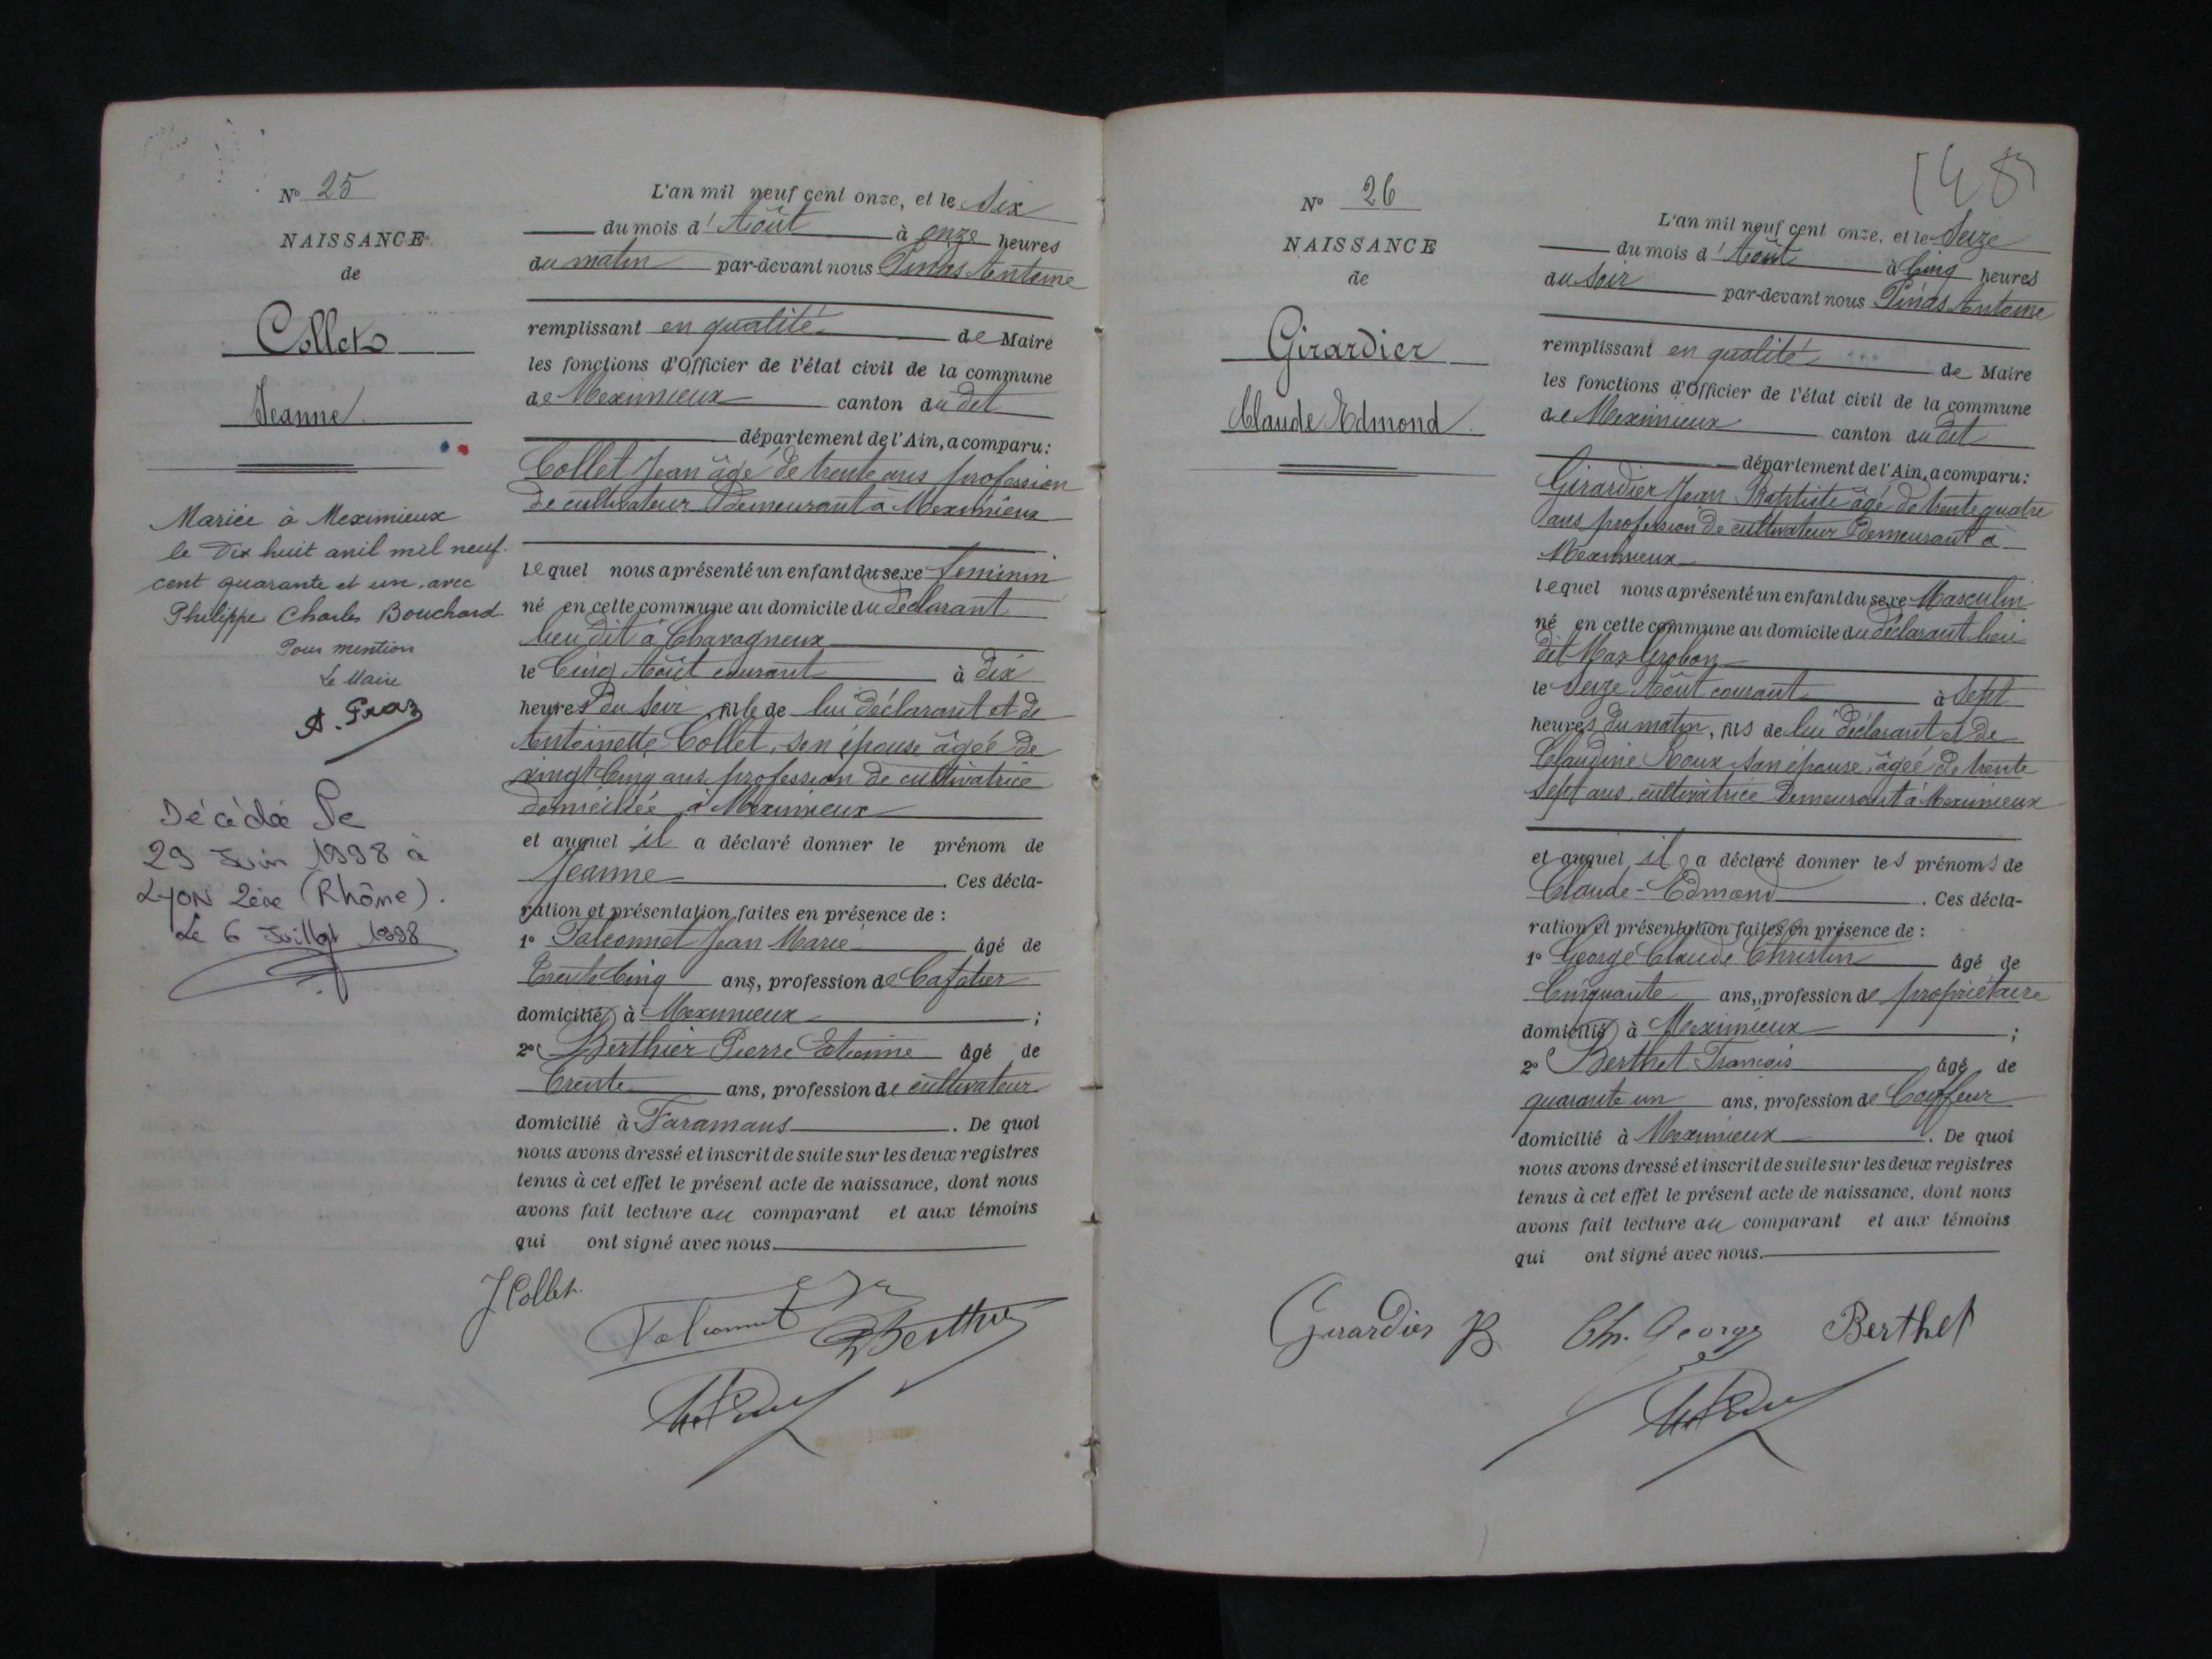 N° 25
NAISSANCE
de
Collet
Jeanne
Mariée à Meximieux
le Dix huit avril mil neuf
cent quarante et un, avec
Philippe Charles Bouchard
Pour mention
Le Maire
Décédée le
29 Juin 1998 à
LYON 2ème (Rhône).
Le 6 Juillet 1998
L'an mil neuf cent onze, et le Six
du mois d'Août à onze heures
du matin par-devant nous Pinas Antoine
remplissant en qualité de Maire
les fonctions d'Officier de l'état civil de la commune
de Meximieux canton du dit
département de l'Ain, a comparu:
Collet Jean âgé de trente ans profession
de cultivateur demeurant à Meximieux
lequel nous a présenté un enfant du sexe féminin
né en cette commune au domicile du déclarant
lieu dit à Chavagneux
le Cinq Août courant à dix
heures du Soir, fille de lui déclarant et de
Antoinette Collet, son épouse âgée de
vingt Cinq ans profession de cultivatrice
domiciliée à Meximieux
et auquel il a déclaré donner le prénom de
Jeanne. Ces décla-
ration et présentation faites en présence de :
1° Falconnet Jean Marie âgé de
Trente Cinq ans, profession de Cafetier
domicilié à Meximieux ;
2° Berthier Pierre Etienne âgé de
Trente ans, profession de cultivateur
domicilié à Faramans. De quoi
nous avons dressé et inscrit de suite sur les deux registres
tenus à cet effet le présent acte de naissance, dont nous
avons fait lecture au comparant et aux témoins
qui ont signé avec nous.
J Collet
Falconnet
Berthier
148
N° 26
NAISSANCE
de
Girardier
Claude Edmond
L'an mil neuf cent onze, et le Seize
du mois d'Août à Cinq heures
du Soir par-devant nous Pinas Antoine
remplissant en qualité de Maire
les fonctions d'Officier de l'état civil de la commune
de Meximieux canton du dit
département de l'Ain, a comparu:
Girardier Jean Baptiste âgé de trente quatre
ans profession de cultivateur demeurant à
Meximieux
lequel nous a présenté un enfant du sexe Masculin
né en cette commune au domicile du déclarant lieu
dit Mas Grobon
le Seize Août courant à Sept
heures du matin, fils de lui déclarant et de
Claudine Roux son épouse, âgée de trente
sept ans, cultivatrice demeurant à Meximieux
et auquel il a déclaré donner les prénoms de
Claude-Edmond. Ces décla-
ration et présentation faites en présence de :
1° George Claude Christin âgé de
Cinquante ans, profession de propriétaire
domicilié à Meximieux ;
2° Berthet François âgé de
quarante un ans, profession de Coiffeur
domicilié à Meximieux. De quoi
nous avons dressé et inscrit de suite sur les deux registres
tenus à cet effet le présent acte de naissance, dont nous
avons fait lecture au comparant et aux témoins
qui ont signé avec nous.
Girardier JB Ch. George Berthet